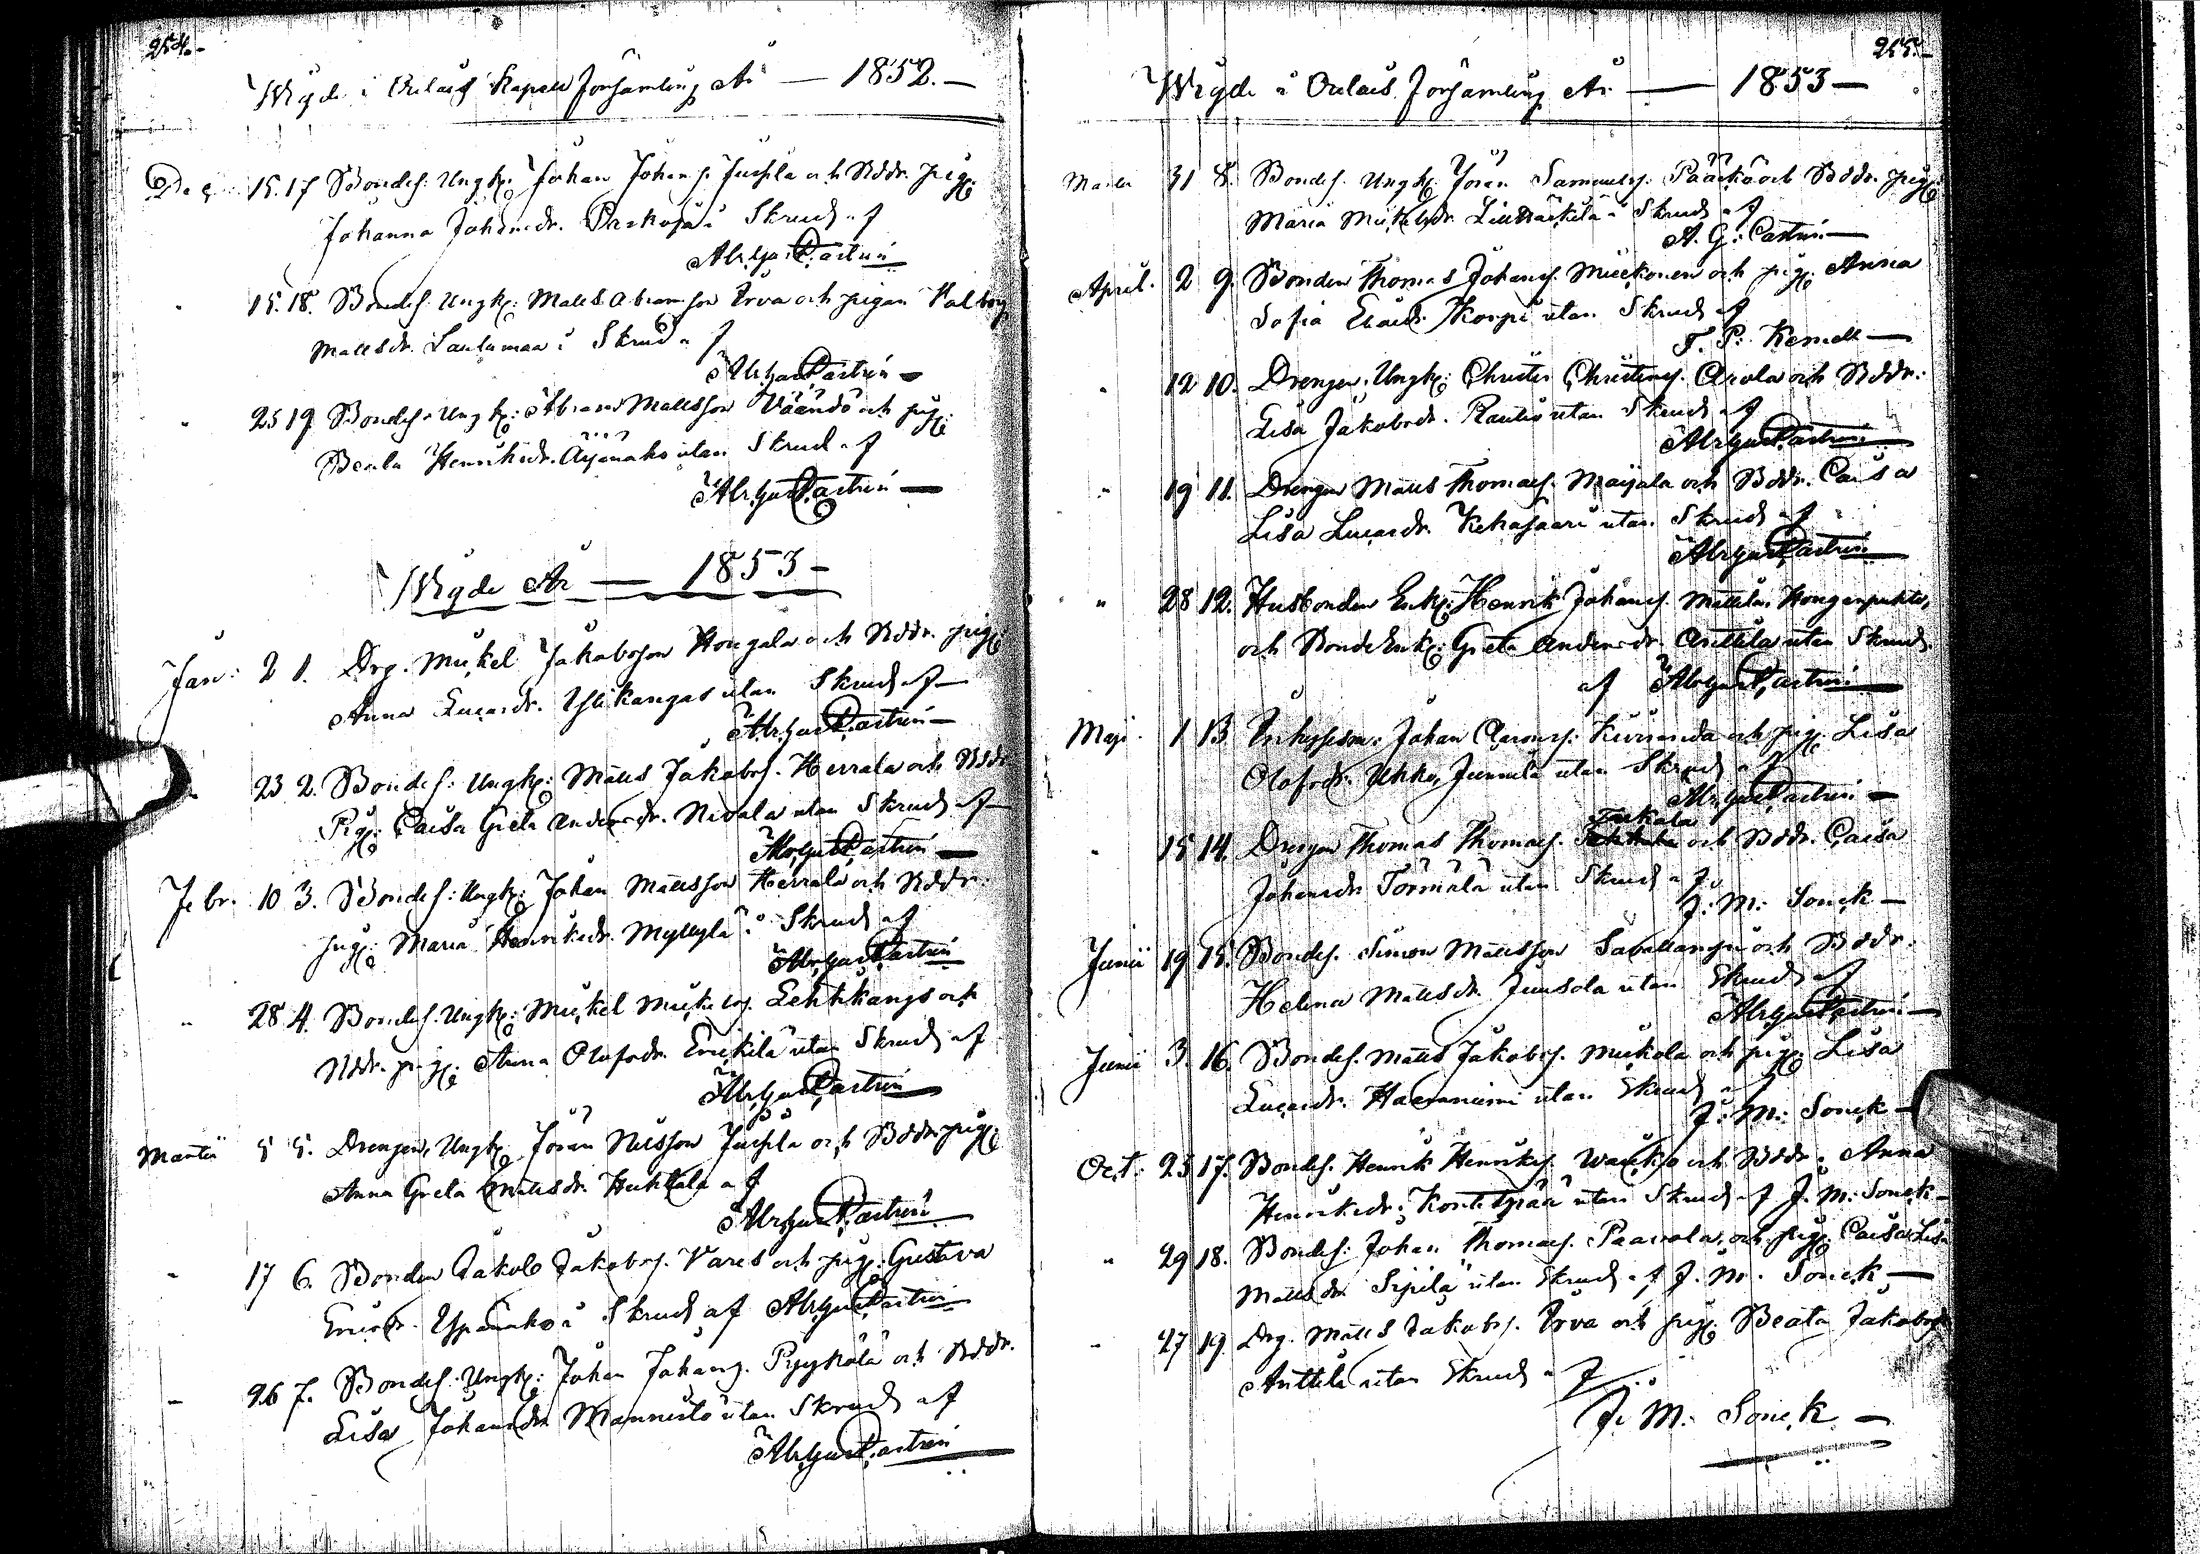 254.
Wigde i Oulais Kapell Församling År — 1852. —
Dec. 15. 17 Bondes. Ungk: Johan Johans. Juspla och Bddr. pig:
Johanna Johansdr. Paskoja i Skrud af
Abr. Gust. Castrén
" 15. 18. Bondes. Ungk: Matts Abramsson Irva och pigan Valborg
Mattsdr. Lautamaa i Skrud af
Abr. Gust. Castrén —
" 25 19 Bondes. Ungk: Abram Mattsson Väändö och pig:
Beata Henriksdr. Äijänaho utan Skrud af
Abr. Gust. Castrén —
Wigde År — 1853 —
Jan: 2 1. Drg. Mickel Jakobsson Hongala och Bddr. pig:
Anna Lucasdr. Ylikangas utan Skrud af —
Abr. Gust. Castrén —
" 23 2. Bondes: Ungk: Matts Jakobs. Herrala och Bddr.
Pig: Caisa Greta Andersdr. Nivala utan Skrud af —
Abr. Gust. Castrén —
Febr. 10 3. Bondes: Ungk: Johan Mattsson Herrala och Bddr.
pig: Maria Henriksdr. Myllylä i Skrud af
Abr. Gust. Castrén
" 28 4. Bondes. Ungk: Mickel Mickels. Lehtikangs och
Bddr. pig: Anna Olofsdr. Erickilä utan Skrud af
Abr. Gust. Castrén
Martii 5 5. Drengen, Ungk. Jöran Nilsson Juspla och Bddr. pig:
Anna Greta Mattsdr. Huhtala af
Abr. Gust. Castrén
" 17 6. Bonden Jakob Jakobs. Vares och pig: Gustava
Ericsdr. Ypänaho i Skrud af Abr. Gust. Castrén
" 26 7. Bondes. Ungk: Johan Johans. Pyykölä och Bddr.
Lisa Johansdr. Mannistö utan Skrud af
Abr. Gust. Castrén
255.
Wigde i Oulais Församling År — 1853 —
Martii 31 8. Bondes. Ungk: Jöran Samuels. Pääkö och Bddr. pig:
Maria Mickelsdr. i Skrud af
A. G: Castrén —
April. 2 9. Bonden Thomas Johans. Mickonen och pig: Anna
Sofia Eliaedr. Korpi utan Skrud af
T. P: Kemell —
" 12 10. Drengen, Ungk: Christer Christers. Ocola och Bddr.
Lisa Jakobsdr. Rautio utan Skrud af
Abr. Gust. Castrén
" 19 11. Drengen Matts Thomaes. Maijala och Bddr. Caisa
Lisa Lucasdr. Kekajaari utan Skrud af
Abr. Gust. Castrén
" 28 12. Husbonden Enkl: Henrik Johans. Mattila, Honganpuhto,
och Bonde Enk: Greta Andersdr. Anttila utan Skrud
af Abr. Gust. Castrén
Maji 1 13 Inhyses m: Johan Aarons: Kiviranda och pig: Lisa
Olofsdr. Uhko, Junnila utan Skrud af
Abr. Gust. Castrén —
Tuikala
" 15 14. Drengen Thomas Thomaes. och Bddr. Caisa
Johansdr. Törmälä utan Skrud af
J. M: Sonck —
Junii 19 15. Bondes. Simon Mattsson Savallampi och Bddr.
Helena Mattsdr. Juusola utan Skrud af
Abr. Gust. Castrén —
Junii 3. 16. Bondes. Matts Jakobs. Mickola och pig: Lisa
Lucasdr. Haemiemi utan Skrud af
J: M: Sonck —
Oct: 23 17. Bondes. Henrik Henriks. och Bddr. Anna
Henriksdr. utan Skrud af J. M: Sonck —
" 29 18. Bondes: Johan Thomaes. Paavola, och pig: Caisa Lisa
Mattsdr. Sipilä utan Skrud af J. M. Sonck —
" 27 19. Drg. Matts Jakobs. Irva och pig: Beata Jakobsdr
Anttila utan Skrud af
J. M: Sonck —